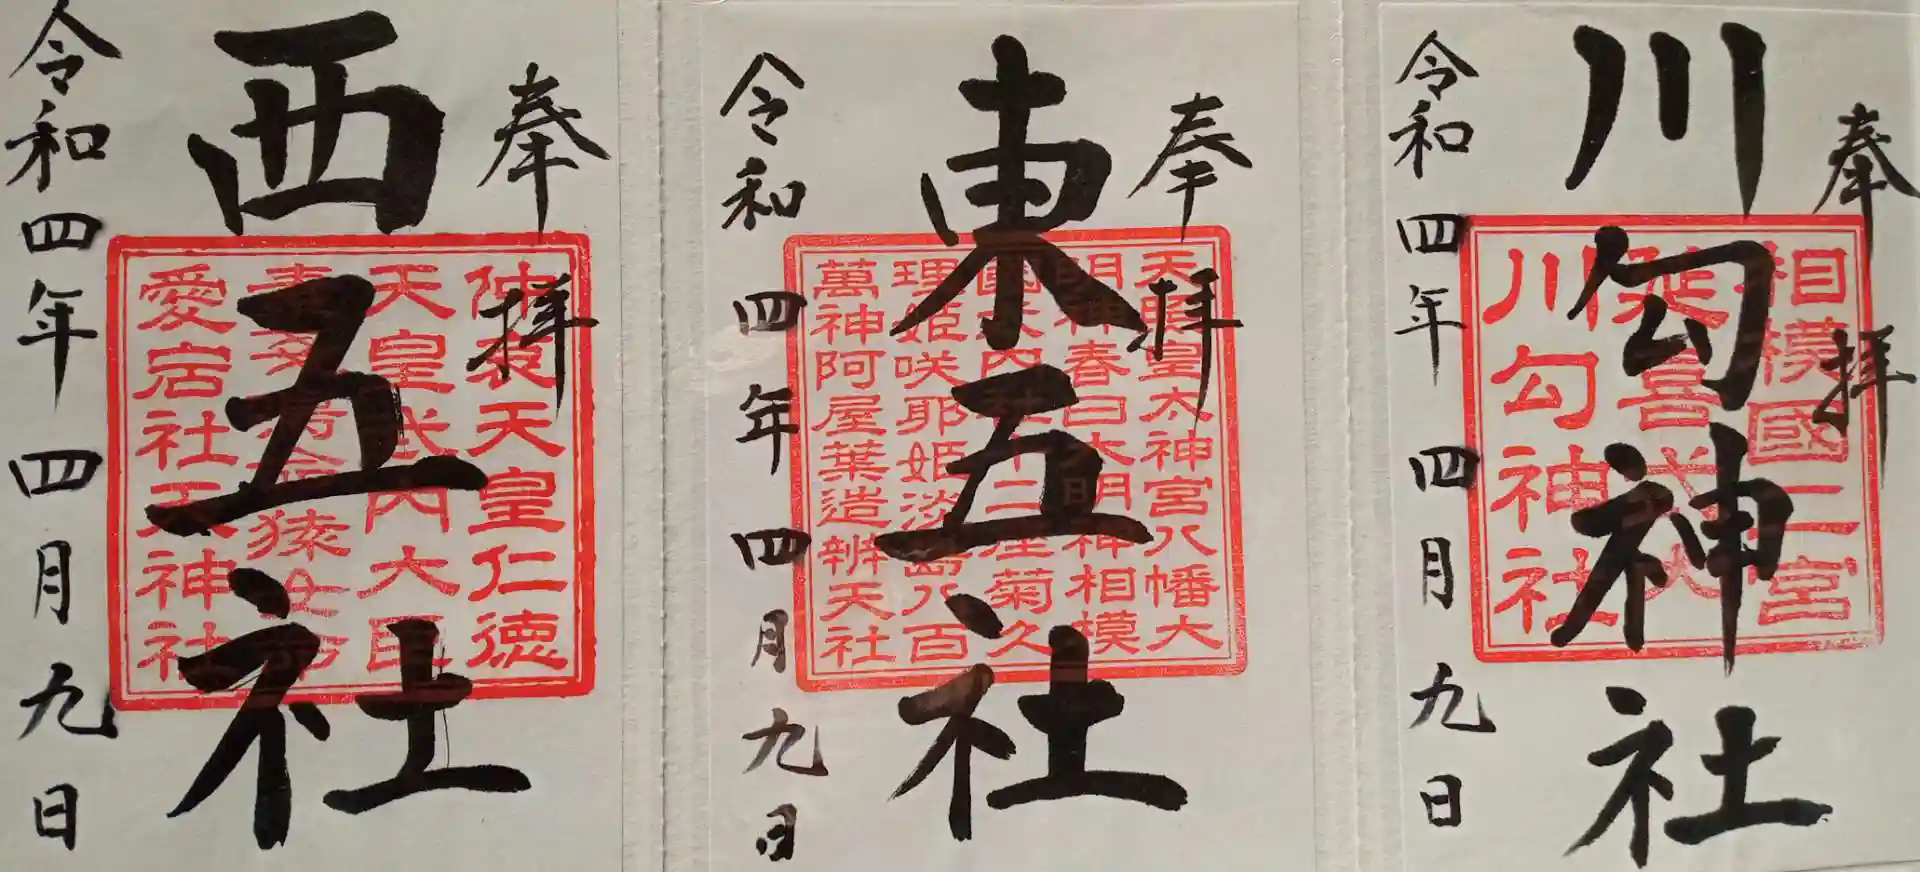 奉拝
川勾神社
相模國二宮
延喜式内
川勾神社
令和四年四月九日
奉拝
東五社
天照皇大神宮八幡大
明神春日大明神相模
二座菊久
理姫咲耶姫淡島八百
萬神阿屋葉造辨天社
令和四年四月九日
奉拝
西五社
仲哀天皇仁徳
天皇武内大臣
猿
愛宕社天神社
令和四年四月九日